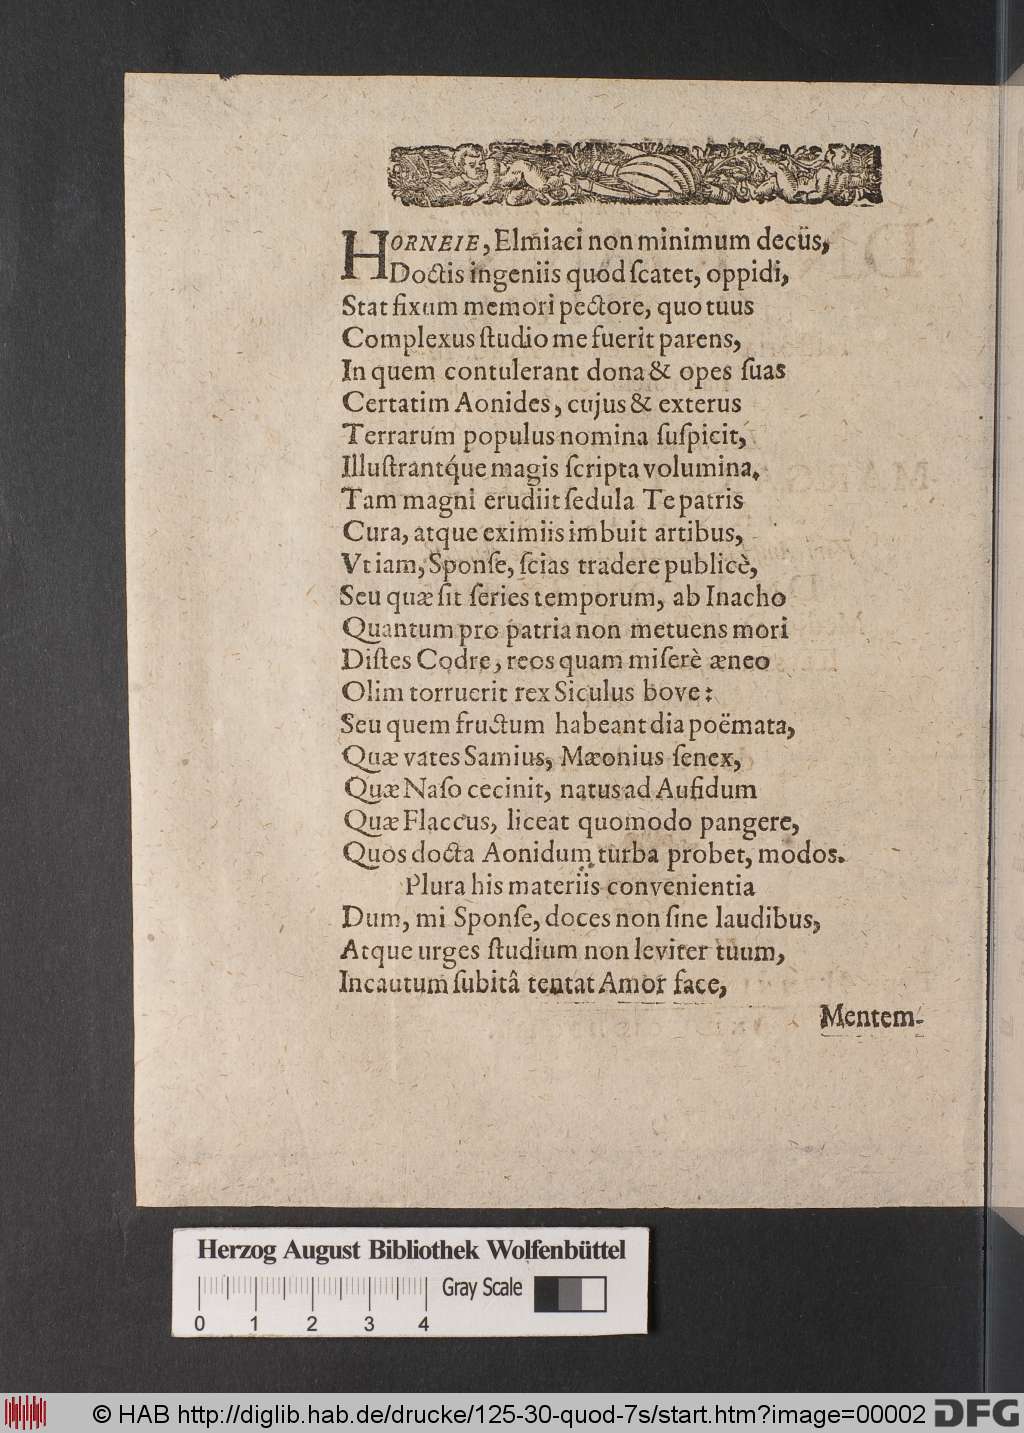 HORNEIE, Elmiaci non minimum decûs,
Doctis ingeniis quod ſcatet, oppidi,
Stat fixum memori pectore, quo tuus
Complexus ſtudio me fuerit parens,
In quem contulerant dona & opes ſuas
Certatim Aonides, cujus & exterus
Terrarum populus nomina ſuſpicit,
Illuſtrantq́ue magis ſcripta volumina.
Tam magni erudiit ſedula Te patris
Cura, atque eximiis imbuit artibus,
Vt iam, Sponſe, ſcias tradere publicè,
Seu quæ ſit ſeries temporum, ab Inacho
Quantum pro patria non metuens mori
Diſtes Codre, reos quam miſerè æneo
Olim torruerit rex Siculus bove:
Seu quem fructum habeant dia poëmata,
Quæ vates Samius, Mæonius ſenex,
Quæ Naſo cecinit, natus ad Aufidum
Quæ Flaccus, liceat quomodo pangere,
Quos docta Aonidum turba probet, modos.
Plura his materiis convenientia
Dum, mi Sponſe, doces non ſine laudibus,
Atque urges ſtudium non leviter tuum,
Incautum ſubitâ tentat Amor face,
Mentem-
Herzog August Bibliothek Wolfenbüttel
Gray Scale
0 1 2 3 4
© HAB http://diglib.hab.de/drucke/125-30-quod-7s/start.htm?image=00002 DFG